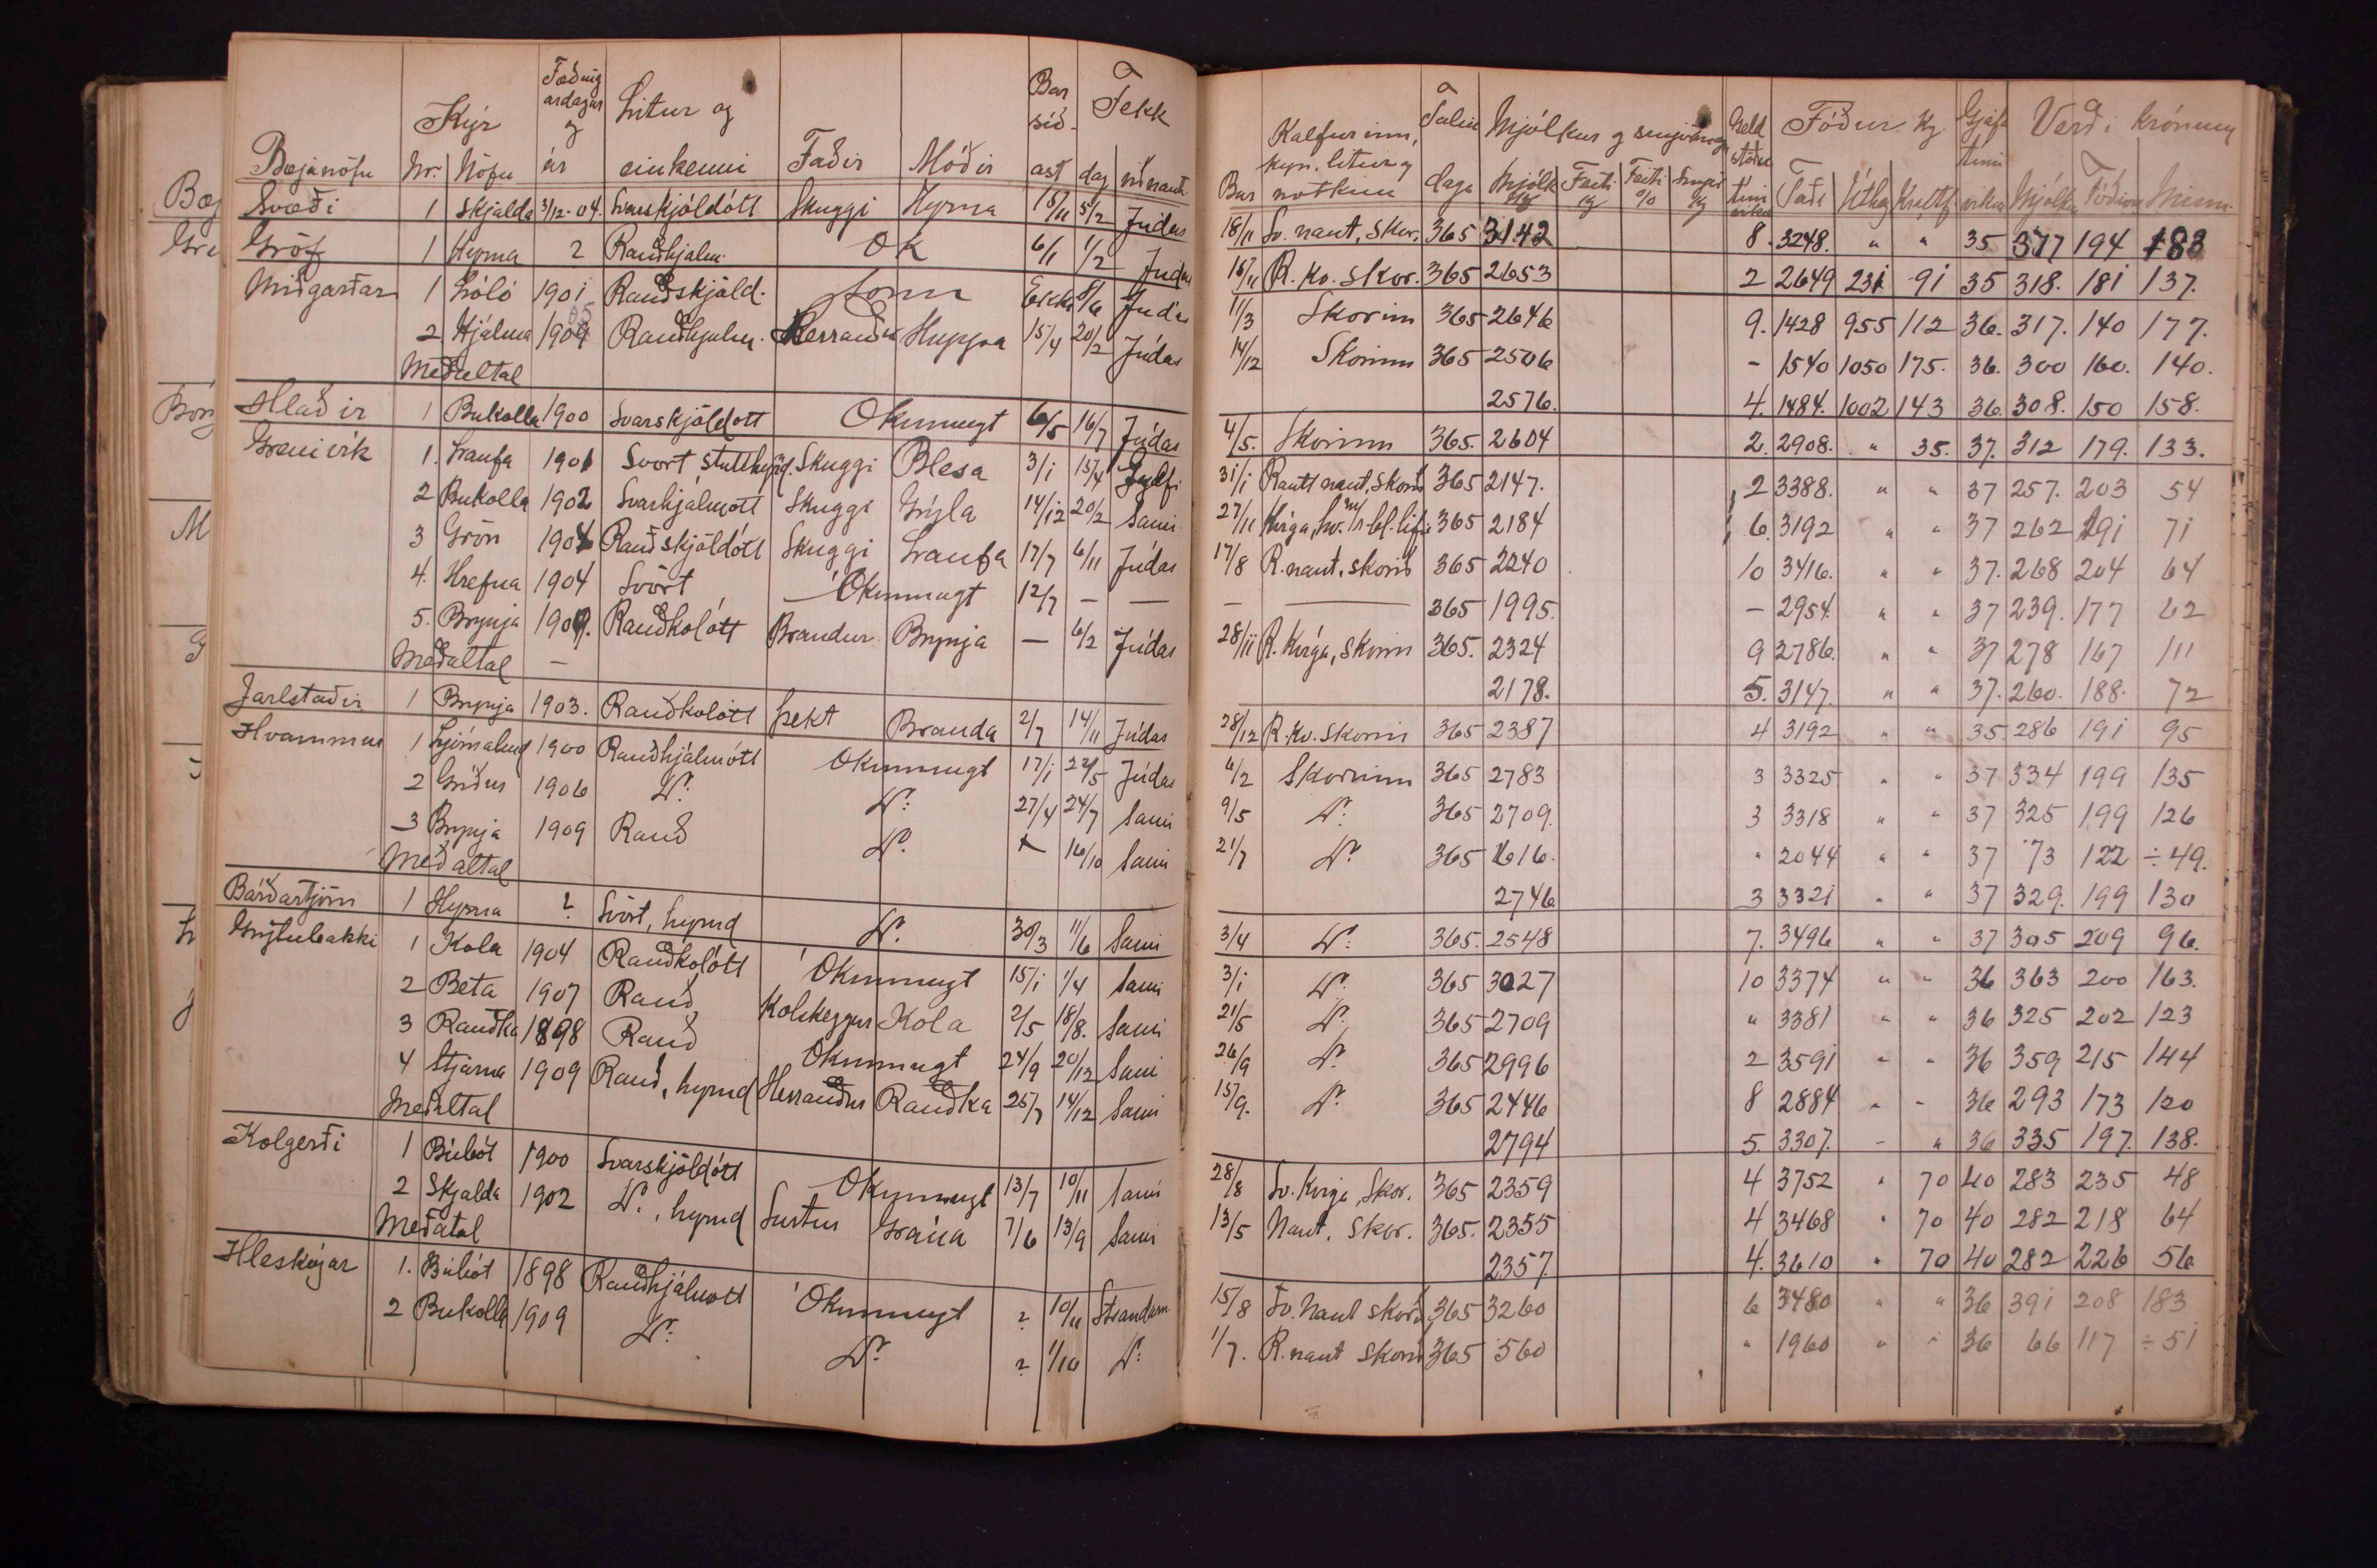 Bæj
Gre
M
Bæjanöfn Kýr Nr. Nöfn Fæðing ardagur og ár Litur og einkenni Faðir Móðir Bar síð- ast Fekk dag við naut
Svæði 1 Skjalda 3/12-04 Svarskjöldótt Skuggi Hyrna 18/11 5/2 Júdas
Gröf 1 Hyrna 2 Rauðhjálm. OK 6/1 1/2 Júdas
Miðgarðar 1 Lóló 1901 Rauðskjöld. 8/6 Júdas
2 Hjálma 1909 Rauðhjalm. Herrauður Huppa 15/4 20/2 Júdas
Meðaltal
Hlaðir 1 Bukolla 1900 Svarskjöldott Okunnugt 6/5 16/7 Júdas
Grenivík 1. Laufa 1901 Svort Skuggi Blesa 3/1 15/4 Gulfi
2 Bukolla 1902 Svarhjálmott Skuggi Grýla 14/12 20/2 Sami
3 Grön 1904 Rauðskjöldótt Skuggi Laufa 17/7 6/11 Júdas
4. Hrefna 1904 Svört Ókunnugt 12/7 — —
5. Brynja 1909. Rauðkolótt Brandur Brynja — 6/2 Júdas
Meðaltal —
Jarlstaðir 1 Brynja 1903. Rauðkolótt Þekt Branda 2/7 14/11 Júdas
Hvammur 1 Ljómalind 1900 Rauðhjálmótt Okunnugt 17/1 22/5 Júdas
2 Gríður 1906 Do. Do. 27/4 24/7 Sami
3 Brynja 1909 Rauð Do. 16/10 Sami
Meðaltal
Bárðartjörn 1 Hyrna ? Svört, hyrnd Do. 30/3 11/6 Sami
Grýtubakki 1 Kola 1904 Rauðkolótt Ókunnugt 15/1 1/4 Sami
2 Beta 1907 Rauð Kolskeggur Kola 2/5 18/8. Sami
3 Rauðka 1898 Rauð Ókunnugt 24/9 20/12 Sami
4 Stjarna 1909 Rauð, hyrnd Herrauður Rauðka 25/7 14/12 Sami
Meðaltal
Kolgerði 1 Búbót 1900 Svarskjöldótt Okunnugt 13/7 10/11 Sami
2 Skjalda 1902 Do., hyrnd Surtur Grána 7/6 13/9 Sami
Meðatal
Hleskógar 1. Búbót 1898 Rauðhjálmott Ókunnugt ? 10/11 Strandum
2 Bukolla 1909 Do. Do. ? 1/10 Do.
Bar Kalfurinn, kyn. litur og notkun Talin daga Mjólkur og smjörmagn Mjólk kg Feiti kg Feiti % Smjör kg Geld stöðu tími vikur Fóður kg Taða Úthey Kraftf. Gjafa tími vikur Verð í krónum Mjólkur Fóðurs Mism.
18/11 Sv. naut, Skor. 365 3142 8. 3248. " " 35 377 194 183
16/11 R. kv. skor. 365 2653 2 2649 231 91 35 318. 181 137.
11/3 Skorinn 365 2646 9. 1428 955 112 36. 317. 140 177.
14/12 Skorinn 365 2506 - 1540 1050 175. 36. 300 160. 140.
2576. 4. 1484. 1002 143 36. 308. 150 158.
4/5. Skorinn 365. 2604 2. 2908. " 35. 37. 312 179. 133.
31/1 Rautt naut, skorið 365 2147. 2 3388. " " 37 257. 203 54
27/11 Kvíga, 365 2184 6. 3192 " " 37 262 191 71
17/8 R. naut, skorið 365 2240 10 3416. " " 37. 268 204 64
— — 365 1995. - 2954. " " 37 239. 177 62
28/11 R. Kvíga, skorin 365. 2324 9 2786. " " 37 278 167 111
2178. 5. 3147. " " 37. 260. 188. 72
28/12 R. kv. skorin 365 2387 4 3192 " " 35. 286 191 95
6/2 Skorinn 365 2783 3 3325 " " 37 334 199 135
9/5 Do. 365 2709. 3 3318 " " 37 325 199 126
21/7 Do. 365 616. " 2044 " " 37 73 122 ÷49.
2746 3 3321 " " 37 329. 199 130
3/4 Do. 365. 2548 7. 3496 " " 37 305 209 96.
3/1 Do. 365 3027 10 3374 " " 36 363 200 163.
21/5 Do. 365 2709 " 3381 " " 36 325 202 123
26/9 Do. 365 2996 2 3591 " " 36 359 215 144
15/9. Do. 365 2446 8 2884 " - 36 293 173 120
2794 5. 3307. - " 36 335 197. 138.
28/8 Sv. Kvíga Skor. 365 2359 4 3752 " 70 40 283 235 48
13/5 Naut. Skor. 365. 2355 4 3468 " 70 40 282 218 64
2357. 4. 3610 " 70 40 282 226 56
15/8 Sv. Naut skorið 365 3260 6 3480 " " 36 391 208 183
1/7. R. naut skorið 365 560 " 1960 " " 36 66 117 ÷51